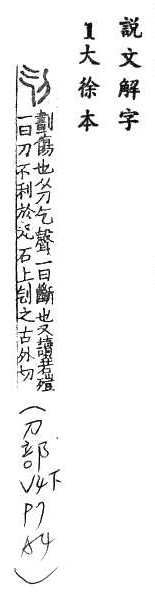 説文解字
1大徐本
劃傷也从刀气聲一曰斷也又讀若殪
一曰刀不利於瓦石上刉之古外切
(刀部V4下P7A4)